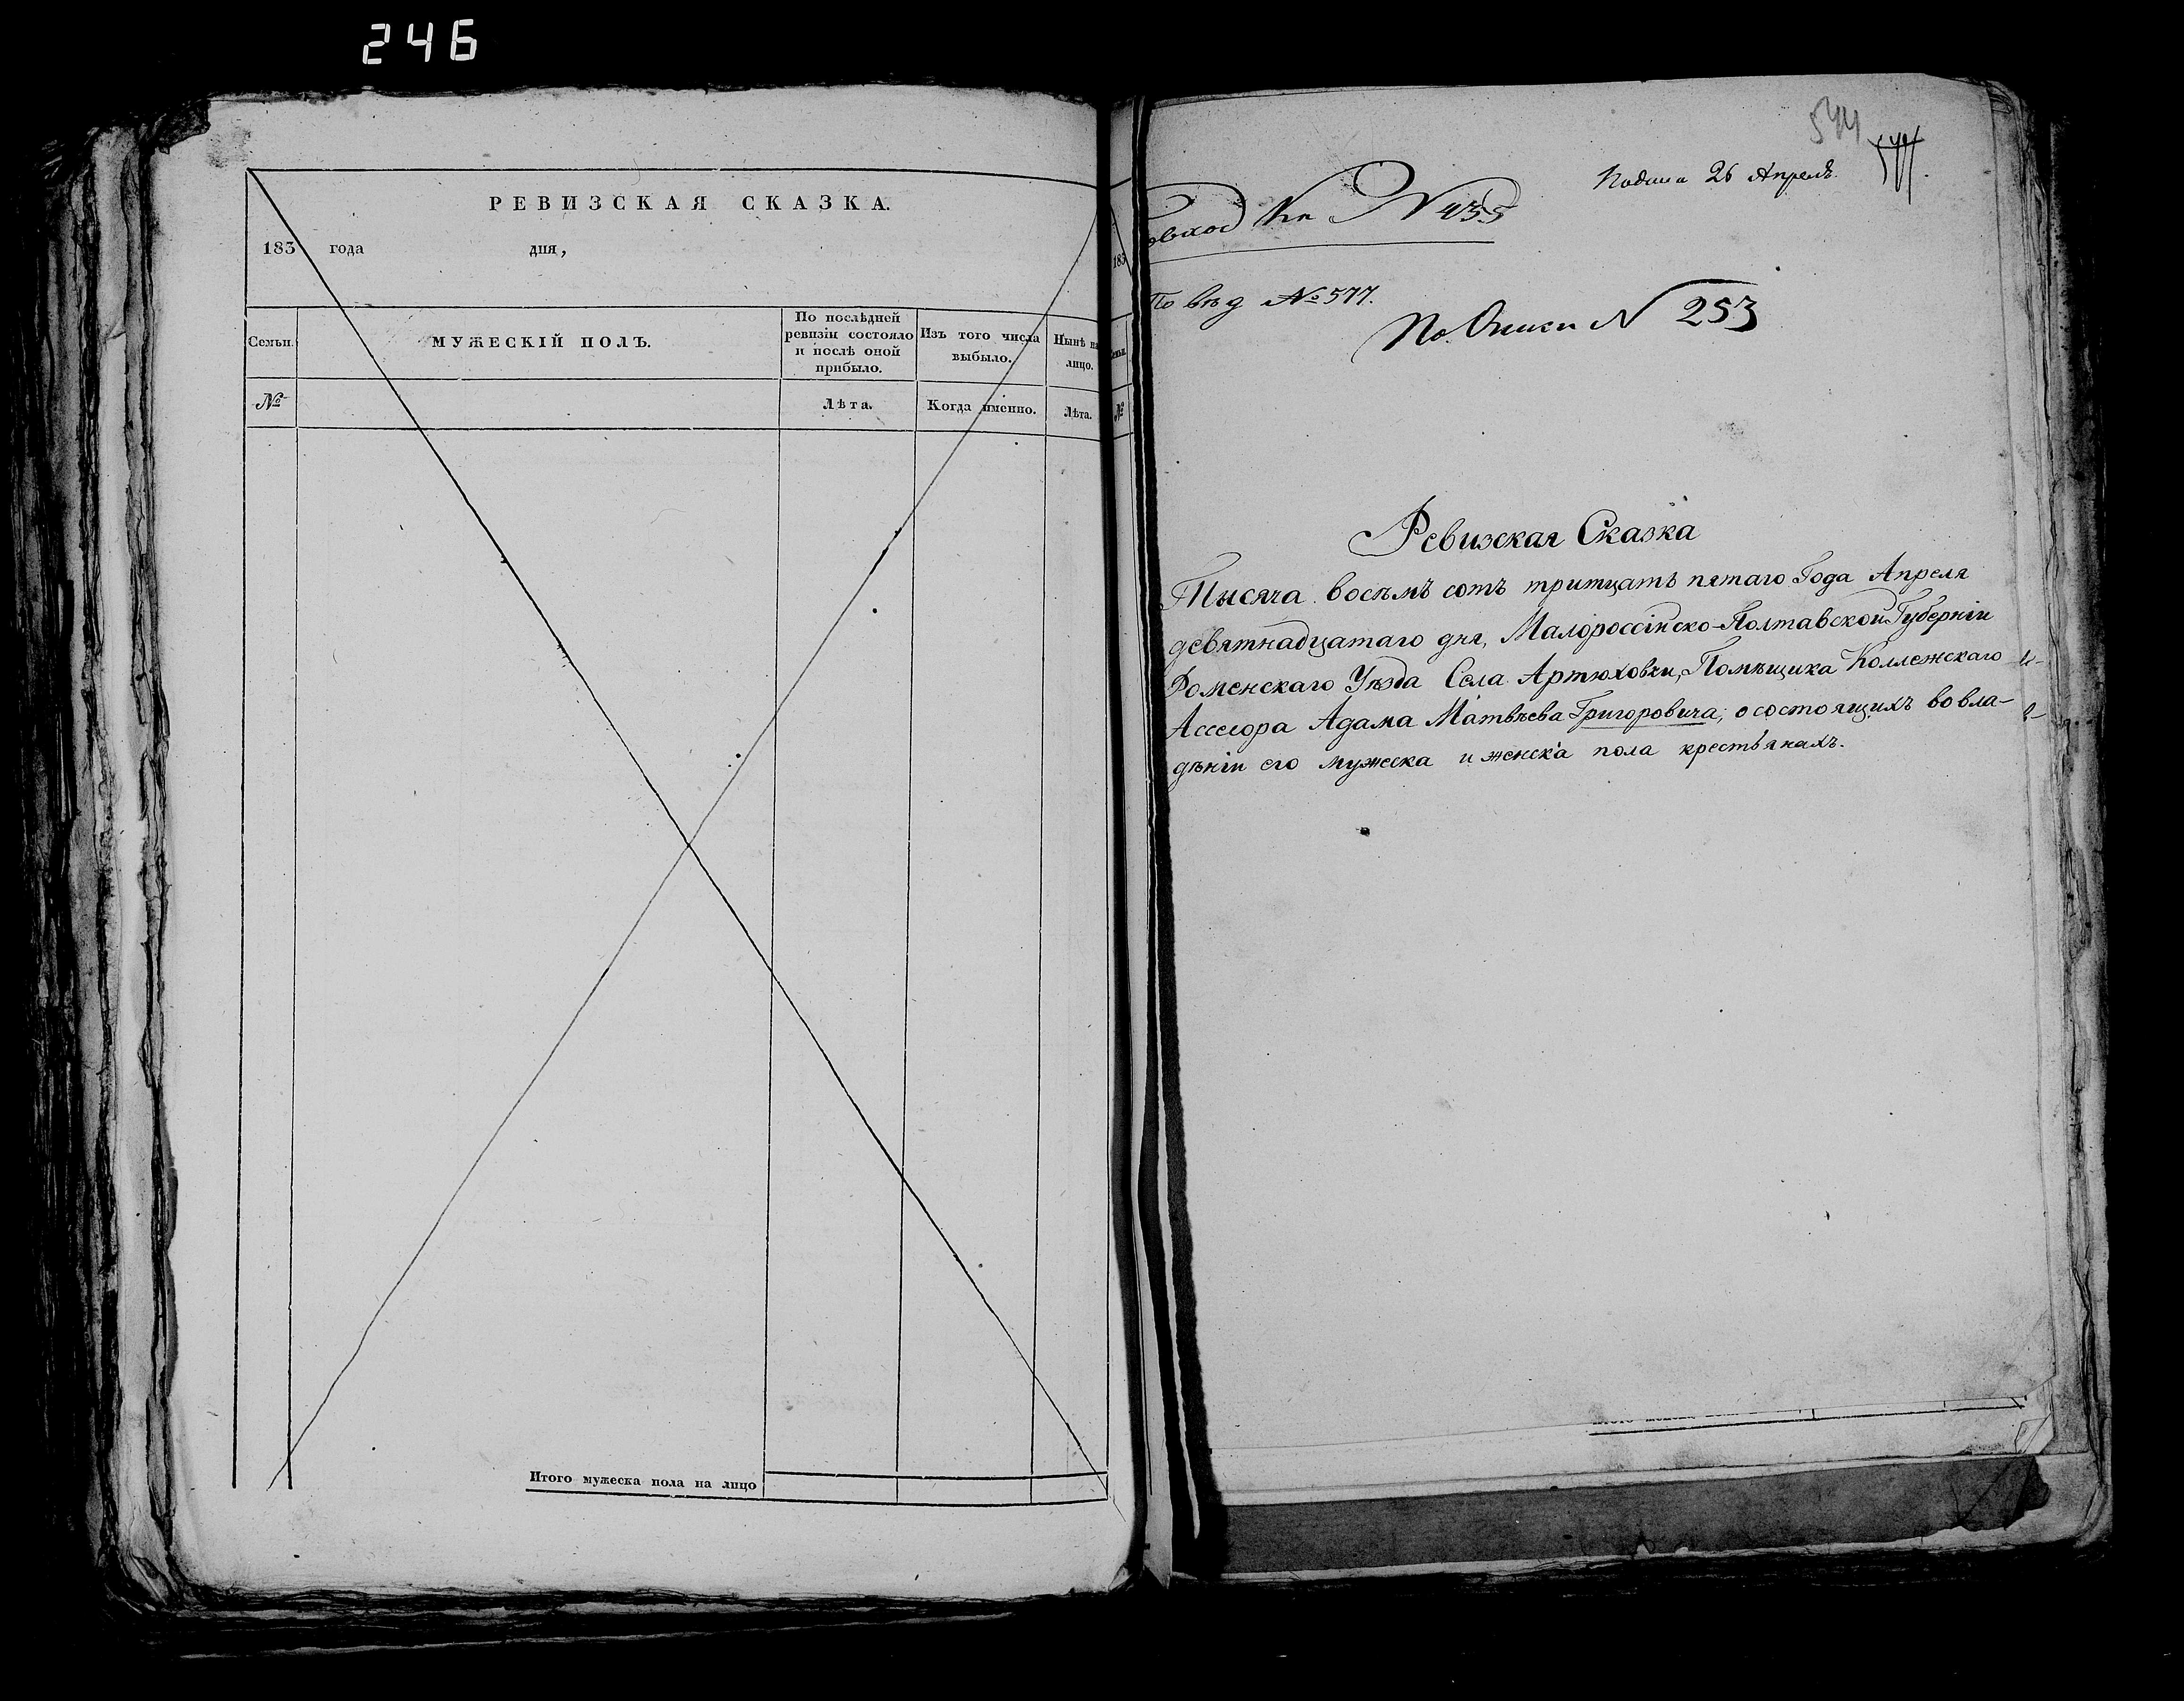 246
РЕВИЗСКАЯ СКАЗКА.
183 года дня,
Семьи.
МУЖЕСКІЙ ПОЛЪ.
По послѣдней
ревизіи состояло
и послѣ оной
прибыло.
Изъ того числа
выбыло.
Нынѣ на
лицо.
№
Лѣта.
Когда именно.
Лѣта.
Итого мужеска пола на лицо
183
№
544
Подана 26 Апреля
N 435
По вѣд № 577.
По Описи N 253
Ревизская Сказка
Тысяча восемъ сотъ тритцать пятаго Года Апреля
девятнадцатаго дня, Малороссійско-Полтавской Губерніи
Роменскаго Уѣзда Села Артюховки, Помѣщика Коллежскаго
Ассесора Адама Матвѣева Григоровича, о состоящихъ во вла-
дѣніи его мужеска и женска пола крестьянахъ.